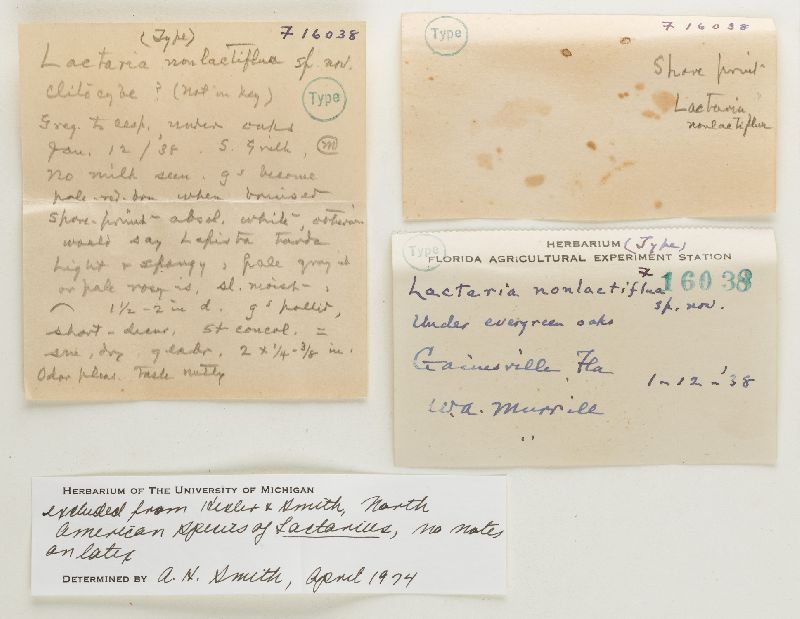 (Type) F 16038
Lactaria nonlactiflua sp. nov.
Clitocybe? (Not in key)
Type
Greg. to cesp. under oaks
Jan. 12/38. S. Grith, m
No milk seen. g's become
pale-red-brn when bruised
Spore-print absol. white, otherwise
would say Lepista tarda
Light & spongy; pale gray
or pale rosy-is, sl. moist;
1½-2 in d. g's pallid,
short-decur. St concol. =
sme, dry, glabr, 2 x ¼-⅜ in.
Odor pleas. Taste nutty
Type F 16038
Spore print
Lactaria
nonlactiflua
Type
HERBARIUM (Type)
FLORIDA AGRICULTURAL EXPERIMENT STATION
F 16038
Lactaria nonlactiflua
sp. nov.
Under evergreen oaks
Gainesville, Fla
1-12-'38
W.A. Murrill
HERBARIUM OF THE UNIVERSITY OF MICHIGAN
excluded from Hesler & Smith, North
American Species of Lactarius, no notes
on latex
DETERMINED BY A. H. Smith, April 1974